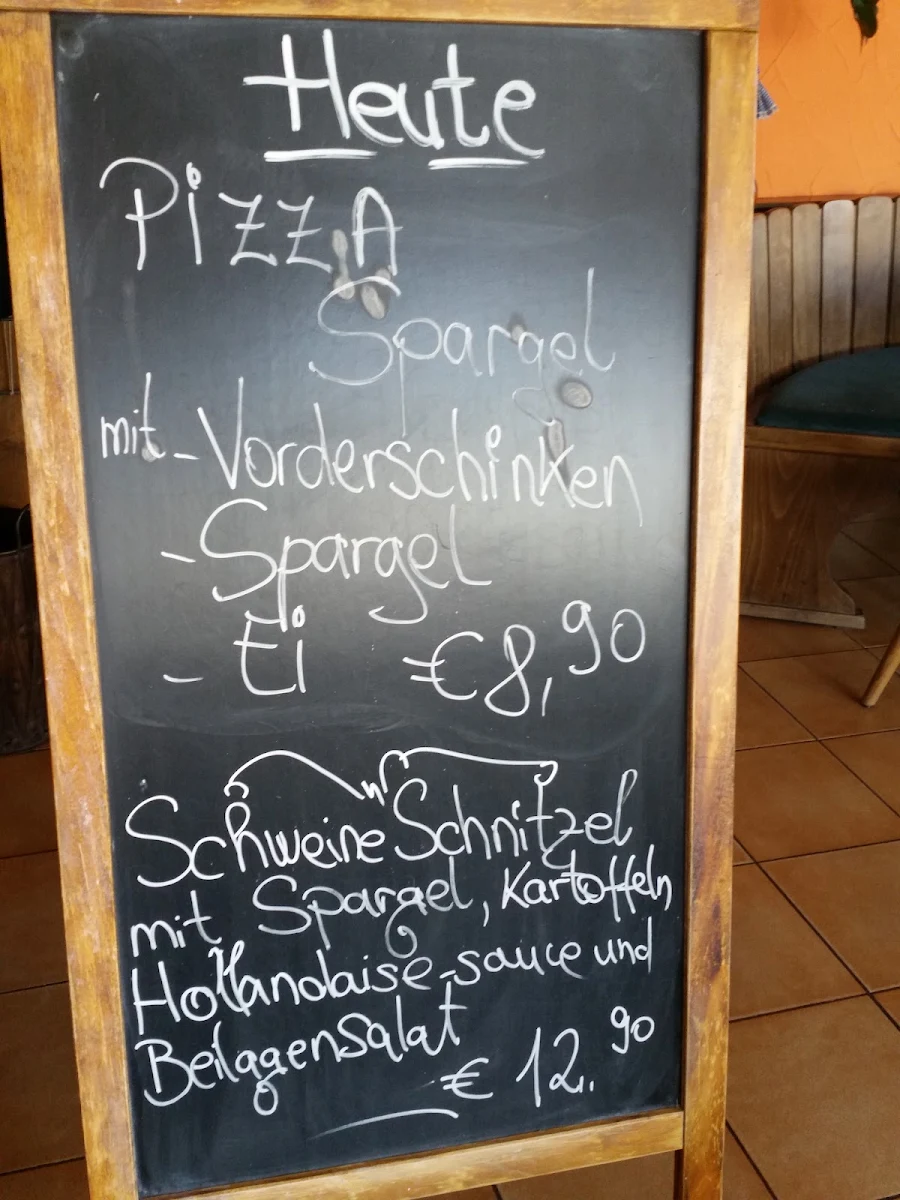 Heute
PizzA
Spargel
mit - Vorderschinken
- Spargel
- Ei €8,90
Schweine Schnitzel
mit Spargel, Kartoffeln,
Hollandaise-sauce und
Beilagensalat
€ 12.90